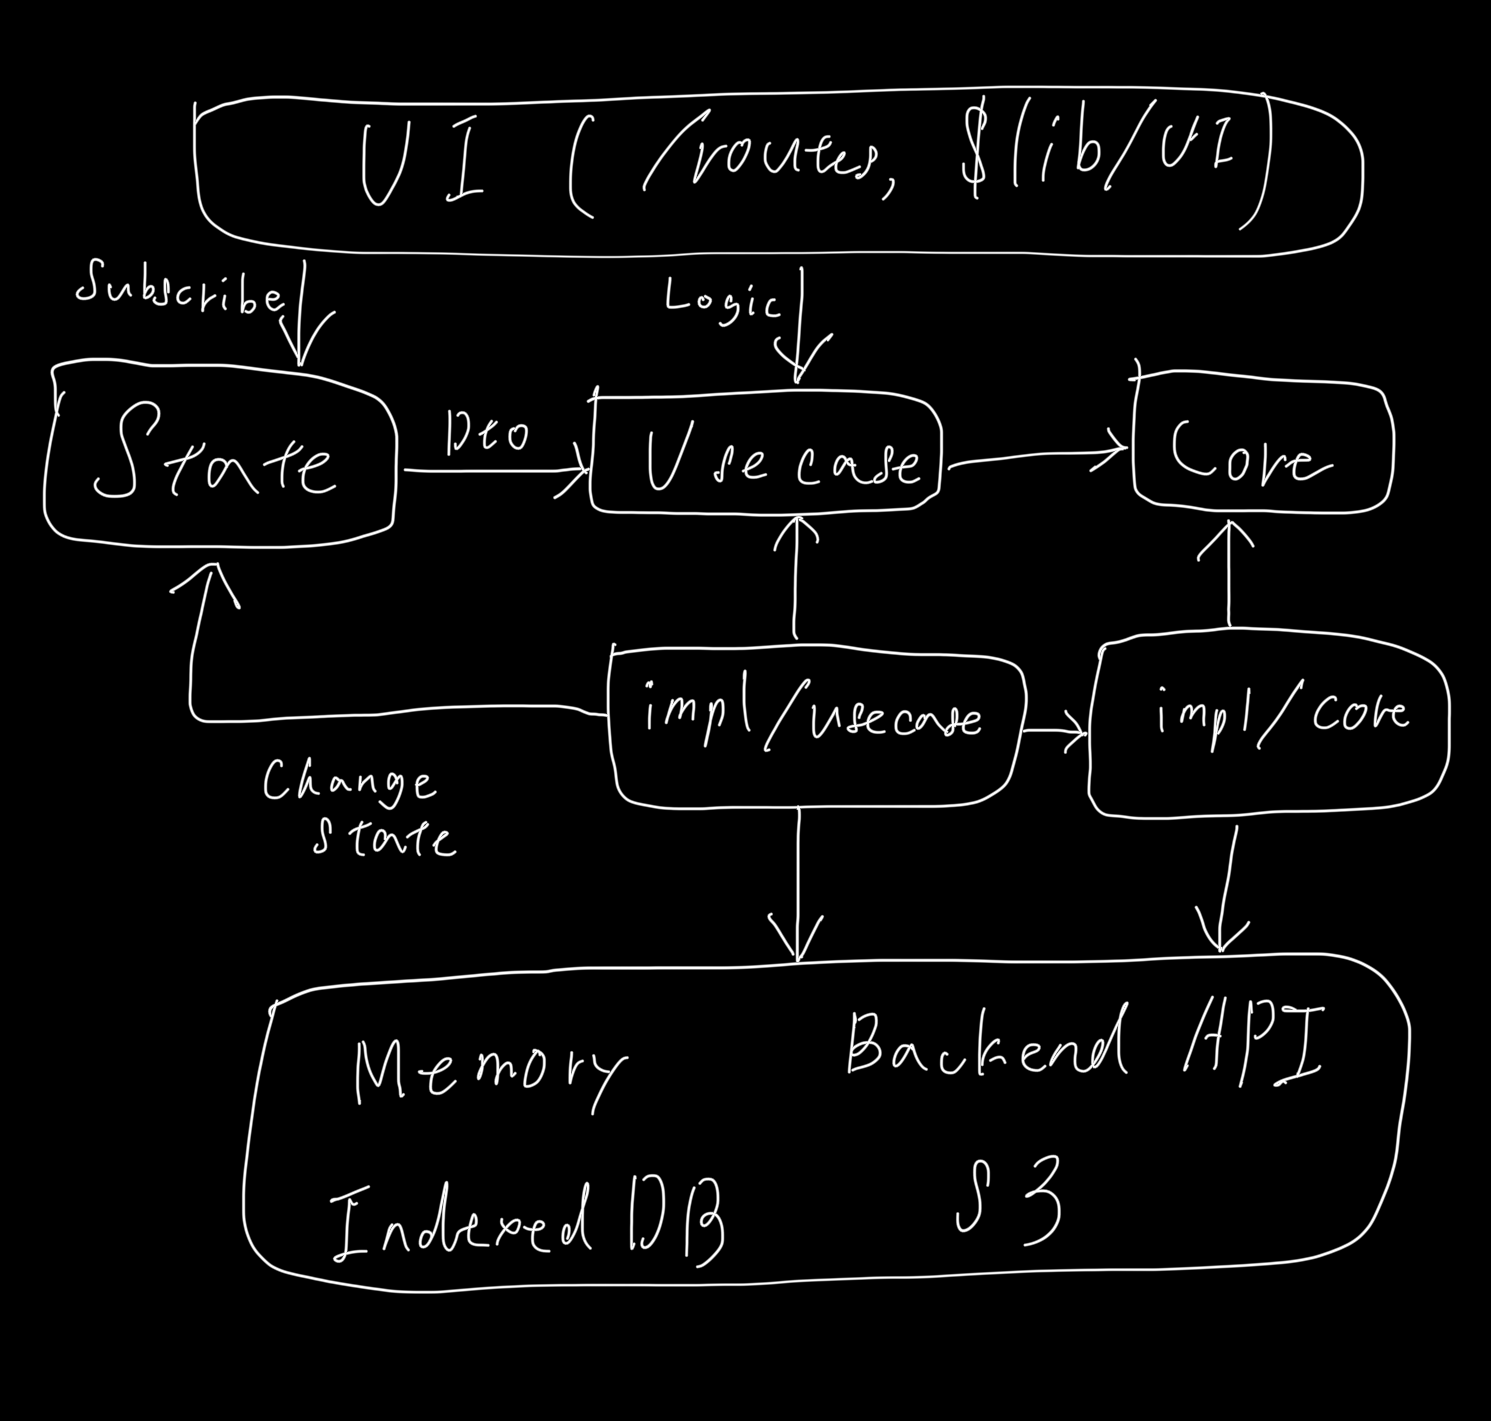 UI ( /routes, $lib/UI)
Subscribe
Logic
State
Dto
Usecase
Core
impl/usecase
impl/core
Change
state
Memory
Backend API
Indexed DB
S3